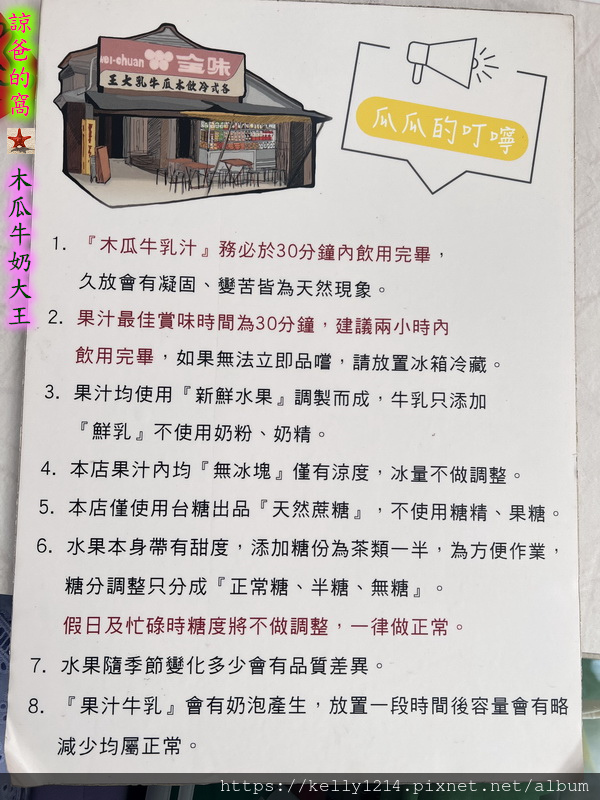 諒爸的窩
木瓜牛奶大王
wei-chuan 味全
王大乳牛瓜木飲冷式各
瓜瓜的叮嚀
1. 『木瓜牛乳汁』務必於30分鐘內飲用完畢，
久放會有凝固、變苦皆為天然現象。
2. 果汁最佳賞味時間為30分鐘，建議兩小時內
飲用完畢，如果無法立即品嚐，請放置冰箱冷藏。
3. 果汁均使用『新鮮水果』調製而成，牛乳只添加
『鮮乳』不使用奶粉、奶精。
4. 本店果汁內均『無冰塊』僅有涼度，冰量不做調整。
5. 本店僅使用台糖出品『天然蔗糖』，不使用糖精、果糖。
6. 水果本身帶有甜度，添加糖份為茶類一半，為方便作業，
糖分調整只分成『正常糖、半糖、無糖』。
假日及忙碌時糖度將不做調整，一律做正常。
7. 水果隨季節變化多少會有品質差異。
8. 『果汁牛乳』會有奶泡產生，放置一段時間後容量會有略
減少均屬正常。
https://kelly1214.pixnet.net/album